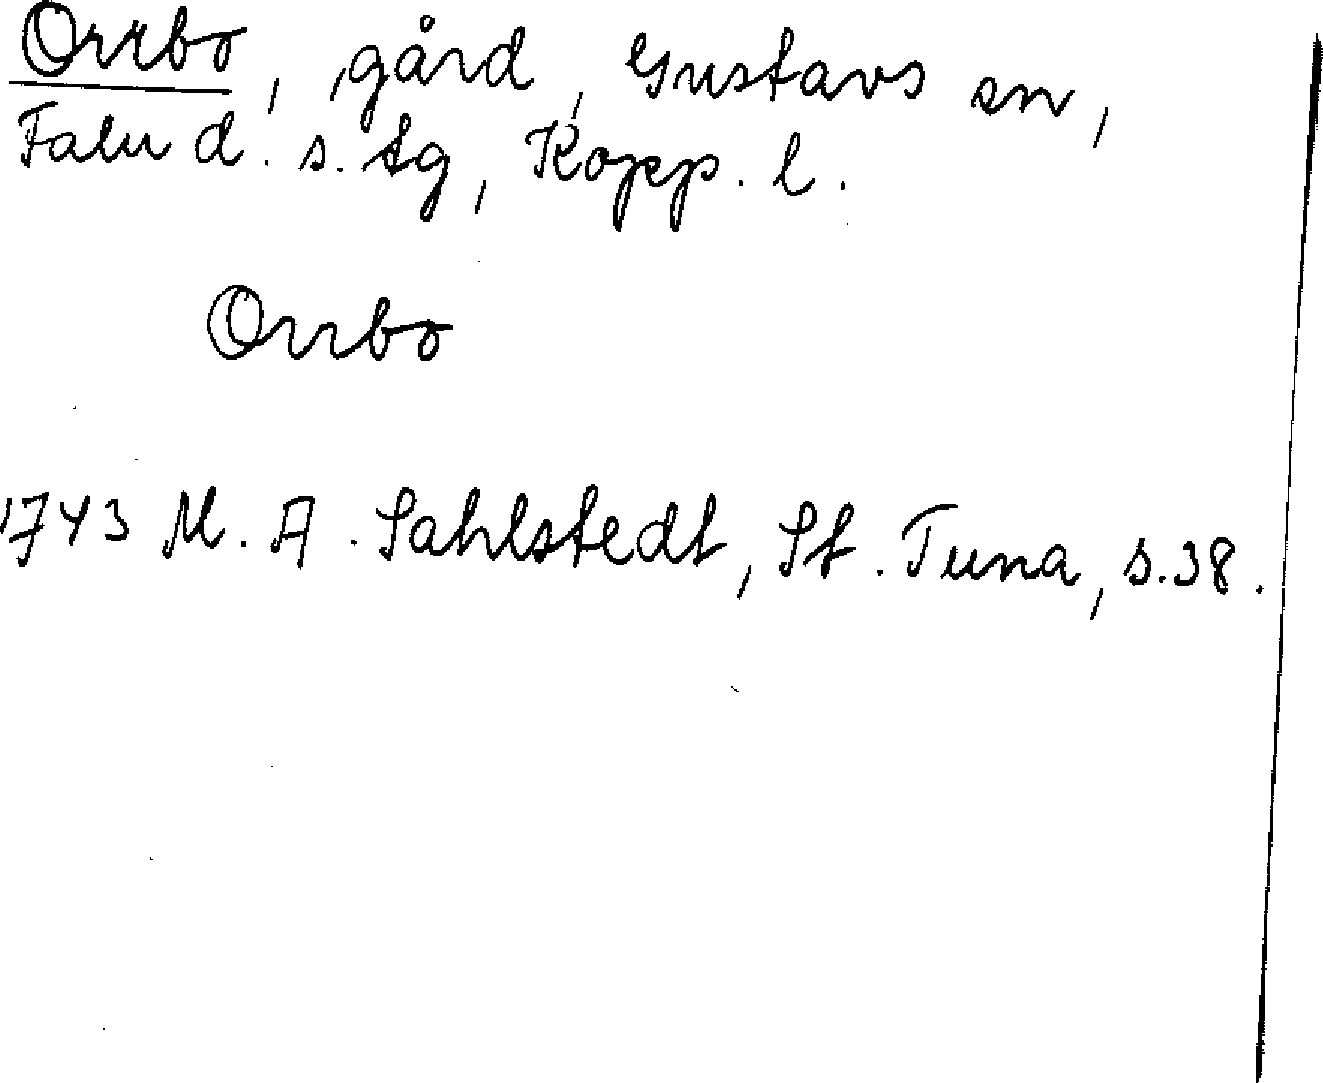 Orrbo, gård, Gustavs sn,
Falu d. s. tg, Kopp. l.
Orrbo
1743 M. A. Sahlstedt, St. Tuna, s. 38.